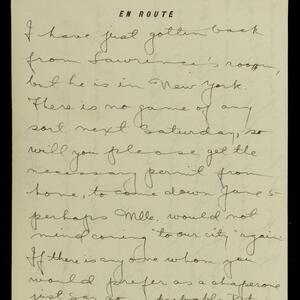 EN ROUTE
I have just gotten back
from Lawrence's room,
but he is in New York.
There is no game of any
sort next Saturday, so
will you please get the
necessary permit from
home, to come down June 5-
perhaps Mlle. would not
mind coming "to our city" again.
If there is any one whom you
would prefer as a chaperone
just say so